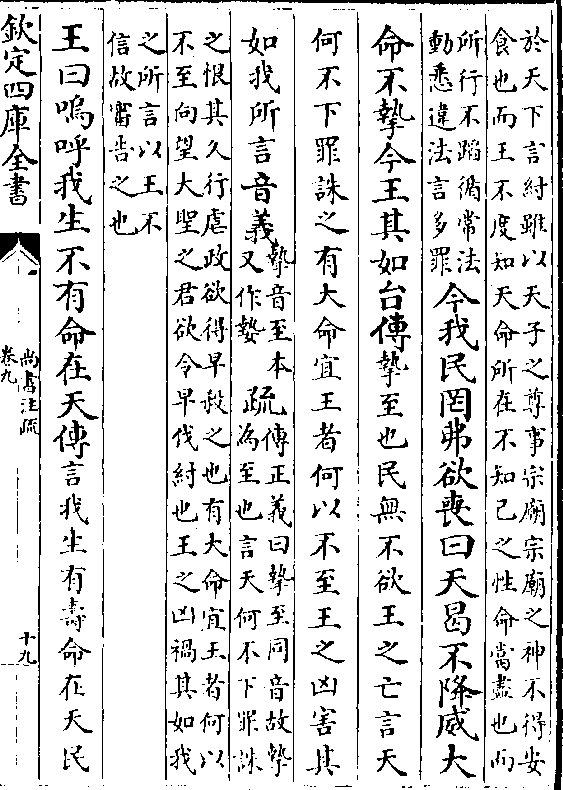 於天下言紂雖以天子之尊事宗廟宗廟之神不得安
食也而王不度知天命所在不知己之性命當盡也而
所行不蹈循常法
動悉違法言多罪今我民罔弗欲喪曰天曷不降威大
命不摯今王其如台傳摯至也民無不欲王之亡言天
何不下罪誅之有大命宜王者何以不至王之凶害其
如我所言音義摯音至本
又作𡠗疏傳正義曰摯至同音故摯
為至也言天何不下罪誅
之恨其久行虐政欲得早殺之也有大命宜王者何以
不至向望大聖之君欲令早伐紂也王之凶禍其如我
之所言以王不
信故審告之也
王曰嗚呼我生不有命在天傳言我生有壽命在天民
欽定四庫全書
尚書注疏
卷九
十九